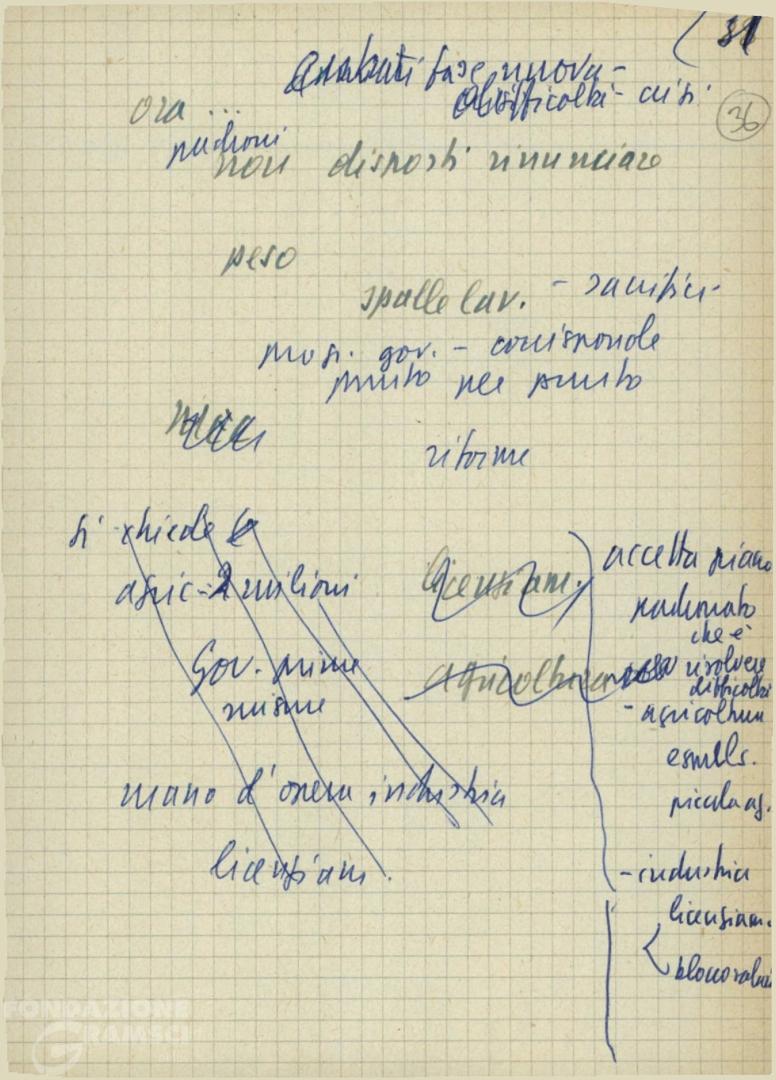 31
36
entrati fase nuova -
difficoltà - crisi
ora ...
padroni
non disposti rinunciare
peso
spalle lav. - sacrifici -
pros. gov. - corrisponde
punto per punto
riforme
si chiede
agric - 2 milioni
licenziam.
Gov. prime
misure
agricoltura
mano d'opera industria
licenziam.
accetta piano
padronato
che è
risolvere
difficoltà
- agricoltura
espuls.
piccola az.
- industria
licenziam.
blocco salari
FONDAZIONE
GRAMSCI